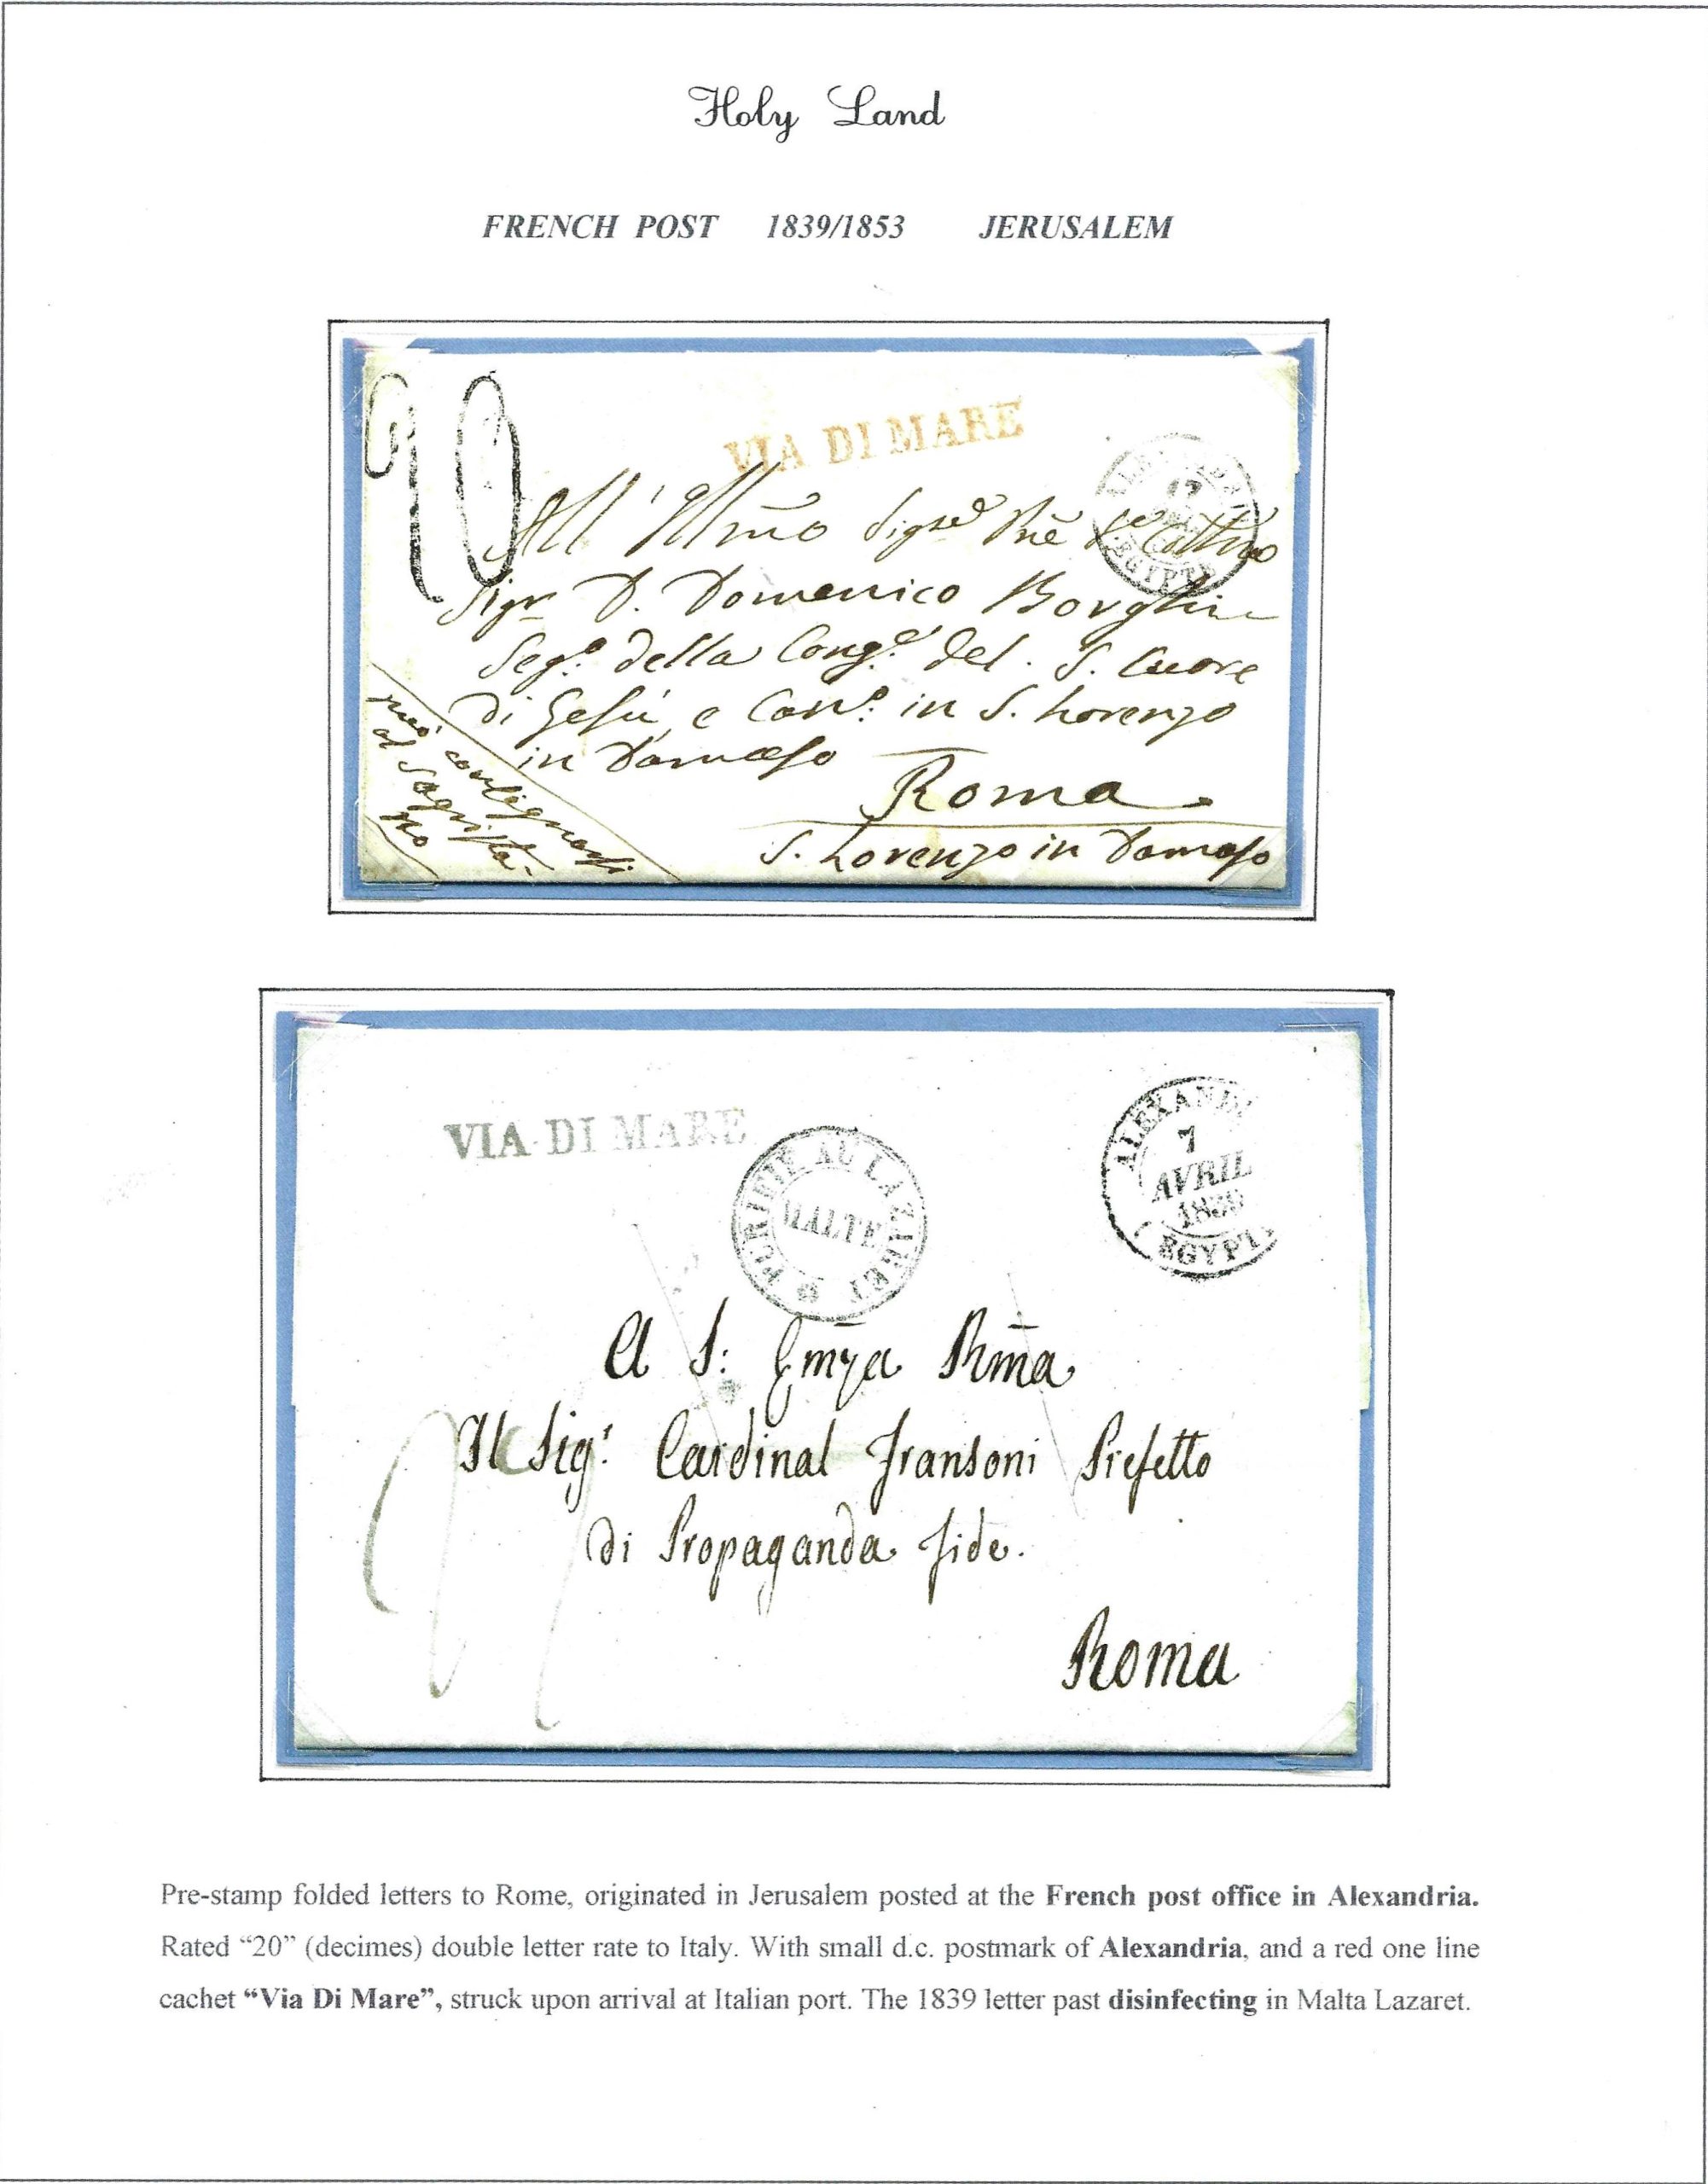 Holy Land
FRENCH POST 1839/1853 JERUSALEM
20
VIA DI MARE
17
EGYPTE
All' Illm̃o Sig.re
Sigr D. Domenico Borghi
Seg.o della Cong.e del. S. Cuore
di Gesù e Can.o in S. Lorenzo
in Damaso
Roma
S. Lorenzo in Damaso
può consegnarsi
al Sagresta-
no
VIA DI MARE
PURIFIÉ AU LAZARET
MALTE
ALEXAND
7
AVRIL
1839
EGYPT
A S: Em̃za Rm̃a
Il Sig.r Cardinal Fransoni Prefetto
di Propaganda fide.
Roma
Pre-stamp folded letters to Rome, originated in Jerusalem posted at the French post office in Alexandria.
Rated “20” (decimes) double letter rate to Italy. With small d.c. postmark of Alexandria, and a red one line
cachet “Via Di Mare”, struck upon arrival at Italian port. The 1839 letter past disinfecting in Malta Lazaret.